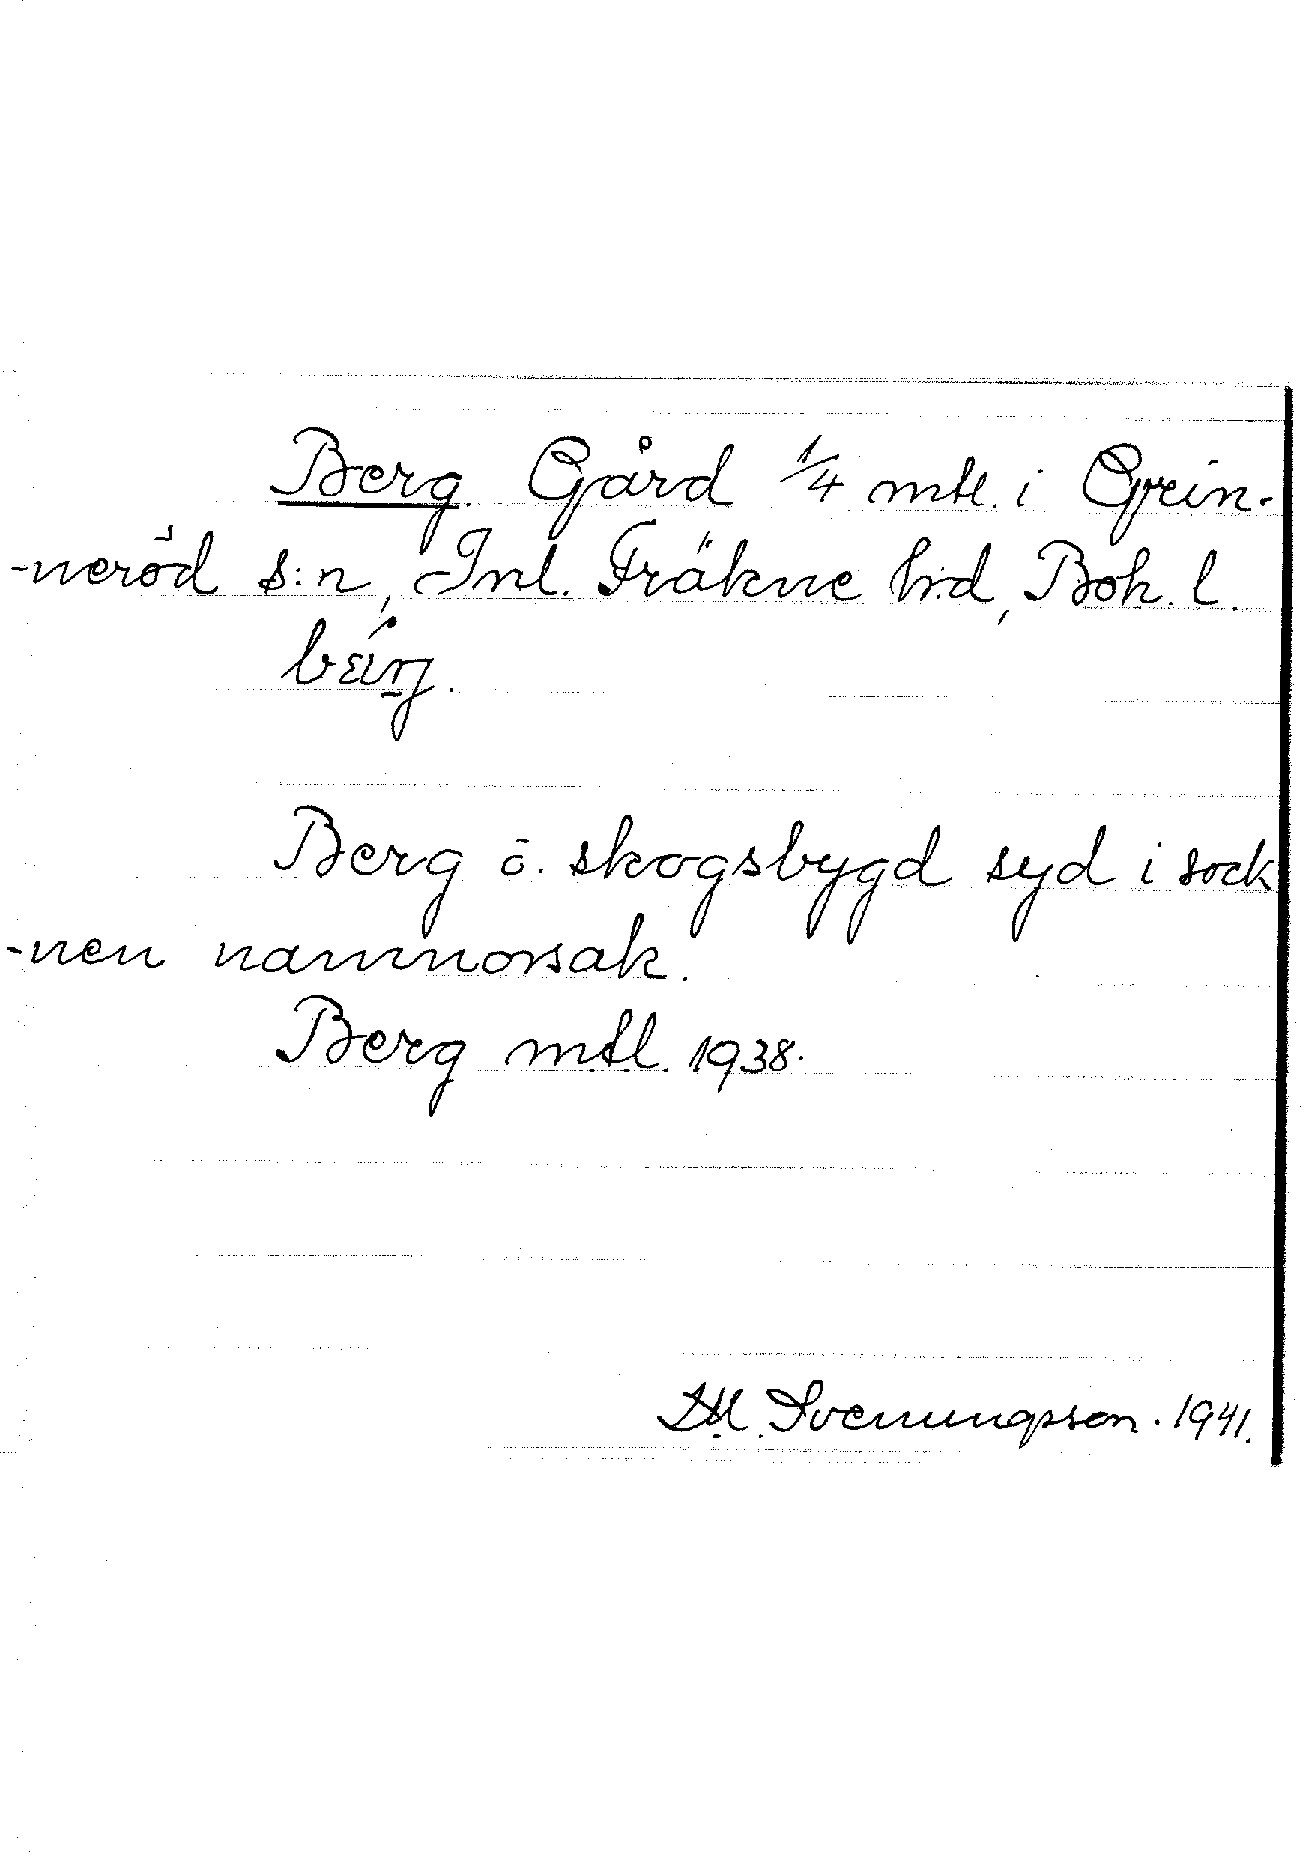 Berg. Gård 1/4 mtl. i Grin-
-neröd s:n, Inl. Fräkne h:d, Boh. l.
Berg o. skogsbygd syd i sock
-nen namnorsak.
Berg mtl. 1938.
Svenungsson. 1941.